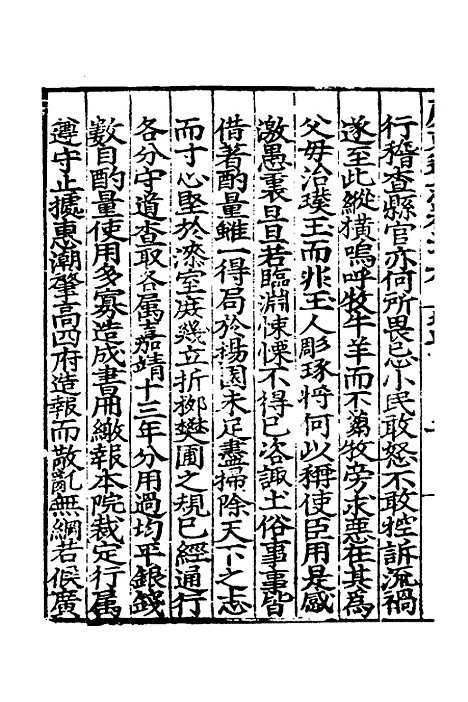 行稽查縣官亦何所畏忌小民敢怒不敢牲訴流禍
遂至此縱橫嗚呼牧牛羊而不蒭牧旁求惡在其爲
父母治璞玉而非玉人彫琢將何以稱使臣用是感
激愚衷旦旦若臨淵悚慄不得已咨諏土俗事事皆
借著酌量雖一得局於揚園未足盡掃除天下之志
而寸心堅於漆室庶幾立折栁樊圃之規已經通行
各分守道查取各属嘉靖十三年分用過均平銀錢
數目酌量使用多寡造成書冊繳報本院裁定行属
遵守止據惠潮肇高四府造報而散亂無綱若候廣